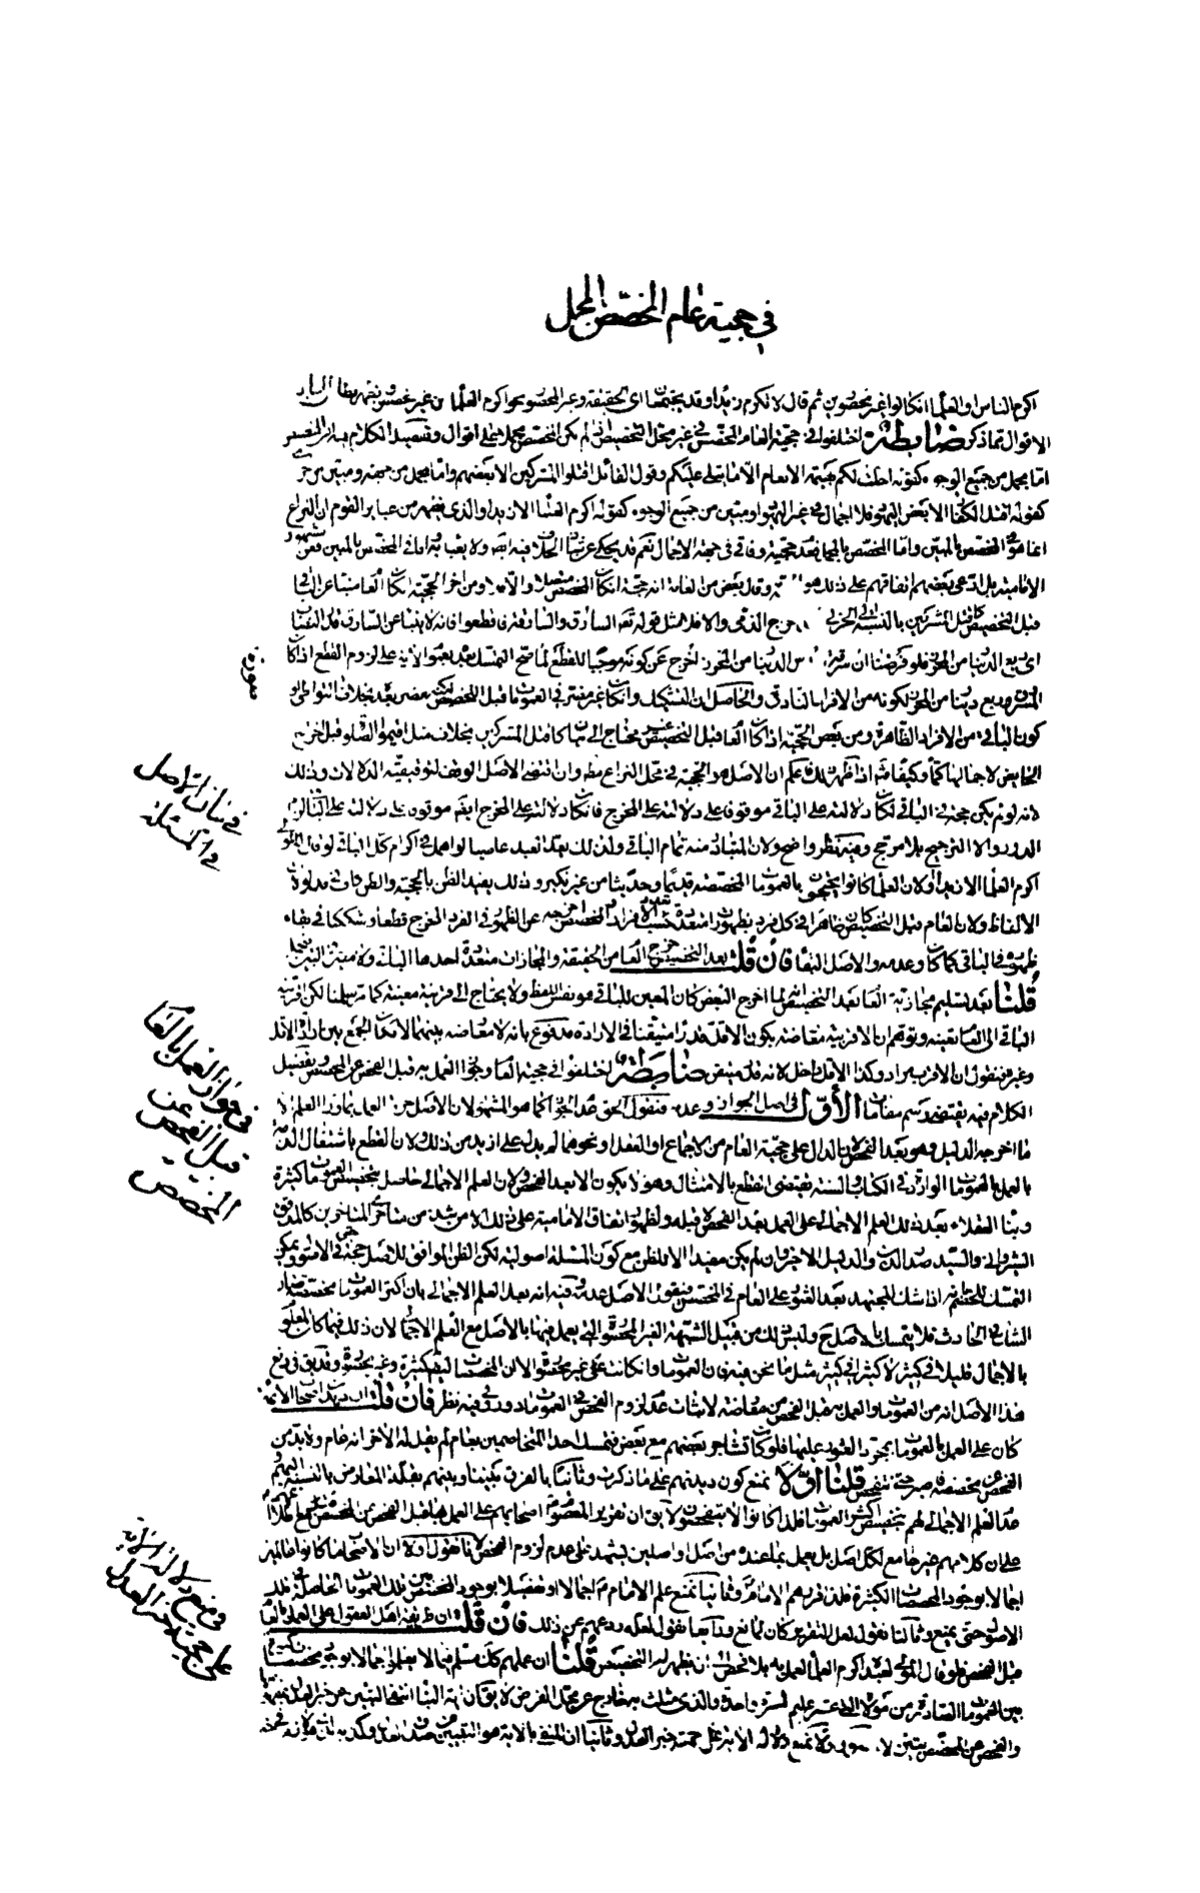 في حجية عام المخصص المجمل
اكرم الناس او العلماء انكانوا غير محصورين ثم قال لا تكرم زيدا وقد يجتمعا اى الحقيقة وغير المحصور نحو اكرم العلماء من غير
الاقوال تماذكر ضابطة اختلفوا في حجية العام المخصص في غير محل التخصيص ان لم يكن المخصص مجملا على اقوال وتفصيد الكلام
اما مجمل من جميع الوجوه كقوله احلت لكم بهيمة الانعام الا ما يتلى عليكم وقول القائل اقتلوا المشركين الا بعضهم واما مجمل من جهة ومبين من
كقوله اقتل الكفار الا بعض اليهود فلا اجمال في غير اليهود او مبين من جميع الوجوه كقوله اكرم العلماء الا زيدا والذي يظهر من عباير القوم ان النزاع
انما هو في المخصص بالمبين واما المخصص بالمجمل فعدم حجيته وفاقي في جهة الاجمال نعم قد يحكى عن الخلاف فيه ايضا ولا يعبأ به اما في المخصص بالمبين فعن
الامامية بل ادعى بعضهم اتفاقهم على ذلك وقال بعض من العامة انه حجة انكان المخصص متصلا والا فلا ومن اخر الحجية انكان العام منبئا عن الباقي
قبل التخصيص كاقتل المشركين بالنسبة الى الحربي خرج الذمي والا فلا مثل قوله تعالى السارق والسارقة فاقطعوا فانه لا ينبئ عن السارق قدر النصاب
اي ربع الدينار من الحرز فلو فرضنا ان من الدينار من الحرز اخرج عن كونه موجبا للقطع لما صح التمسك بعموم الاية على لزوم القطع اذا كان
المسروق ربع دينار من الحرز لكونه من الافراد النادرة والحاصل ان التشكيك وانكان غير مضر في العمومات قبل التخصيص لكنه مضر بعده بخلاف التواطى او
كون الباقي من الافراد الظاهرة ومن بعض الحجية اذا كان العام قبل التخصيص غير محتاج الى بيان كاقتل المشركين بخلاف مثل اقيموا الصلوة قبل اخراج
الحايض لاجمالها كما وكيفا ثم اذا ظهر لك ذلك فاعلم ان الاصل هو الحجية في محل النزاع مطلقا وان اقتضى الاصل الوقف لتوقيفية الدلالات وذلك
لانه لو لم يكن حجة في الباقي لكان دلالته على الباقي موقوفا على دلالته على المخرج فانكان دلالته على المخرج ايضا موقوفة على دلالته على الباقي لزم
الدور والا الترجيح بلا مرجح وفيه نظر واضح ولان المتبادر منه تمام الباقي ولذلك يعد العبد عاصيا لو اهمل في اكرام كل الباقي لو قال المولى
اكرم العلماء الا زيدا ولان العلماء كانوا يحتجون بالعمومات المخصصة قديما وحديثا من غير نكير وذلك يفيد الظن بالحجية والظن حجة في مدلولات
الالفاظ ولان العام قبل التخصيص كان ظاهرا في كل فرد بظهورات متعددة بحسب الافراد والتخصيص اخرجه عن الظهور في الفرد المخرج قطعا وشككنا في بقاء
ظهوره في الباقي كما كان وعدمه والاصل البقاء فان قلت بعد التخصيص خرج العام من الحقيقة والمجازات متعددة احدها الباقي ولا معين في البين
قلنا بعد تسليم مجازية العام بعد التخصيص انه لما اخرج البعض كان المعين للباقي هو نفس اللفظ ولا يحتاج الى قرينة معينة كما مر سلمنا لكن اقربية
الباقي الى العام يعينه وتوهم ان الاقربية معارضة بكون الاقل قدرا متيقنا في الارادة مدفوع بانه لا معارضة بينهما لامكان الجمع بين ارادة الاقل
وغيره فنقول ان الاقرب مراد وكذا الاقل داخل لانه قدر متيقن ضابطة اختلفوا في حجية العام وجواز العمل به قبل الفحص عن المخصص وتفصيل
الكلام فيه يقتضي رسم مقامات الأول في اصل الجواز وعدمه فنقول الحق عدم الجواز كما هو المشهور لان الاصل حرمة العمل بماوراء العلم الا
ما اخرجه الدليل وهو بعد الفحص لان الدال على حجية العام من الاجماع او العقل او نحوهما لم يدل على ازيد من ذلك ولان القطع باشتغال الذمة
بالعمل بالعمومات الواردة في الكتاب والسنة يقتضي القطع بالامتثال وهو لا يكون الا بعد الفحص ولان العلم الاجمالي حاصل بتخصيص العمومات كثيرة
وبناء العقلاء بعد ذلك العلم الاجمالي على العمل بعد الفحص لا قبله ولظهور اتفاق الامامية على ذلك الا من شذ من متأخري المتاخرين كالمدقق
الشيرواني والسيد صدر الدين والدليل الاخير وان لم يكن مفيدا الا للظن مع كون المسئلة اصولية لكن الظن الموافق للاصل حجة في الاصول
التمسك اذا شك المجتهد بعد العثور على العام في المخصص فنقول الاصل عدمه وفيه انه بعد العلم الاجمالي بان اكثر العمومات مخصصة صار
الشك في الحادث فلا يتمسك بالاصل ح وليس ذلك من قبيل الشبهة الغير المحصورة التي يعمل فيها بالاصل مع العلم الاجمالي لان ذلك فيما كان المعلوم
بالاجمال قليلا في كثير لا كثيرا في كثير مثل ما نحن فيه فان العمومات وانكانت غير محصورة الا ان المخصصات ايضا كثيرة وغير محصورة وقد يق في دفع
هذا الاصل انه من العمومات والعمل به قبل الفحص من معارضه لاثبات عدم لزوم الفحص في العمومات دوري وفيه نظر فان قلت ان ديدن اصحاب الائمة
كان على العمل بالعمومات بمجرد العثور عليها فلو كان تشاجر بعضهم مع بعض فتمسك احد المتخاصمين بعام لم يقل له الاخر انه عام ولا بد من
الفحص عن مخصصه فاصبر حتى نتفحص قلنا اولا نمنع كون ديدنهم على ما ذكرت وثانيا بالفرق بيننا وبينهم بقلة المعارض بالنسبة اليهم
عدم العلم الاجمالي لهم بتخصيص اكثر العمومات فلذا كانوا لا يتفحصون لا يق ان تقرير المعصوم اصحابهم على العمل بها قبل الفحص عن المخصص مع علمه
على ان كلامهم غير جامع لكل اصل بل يعمل بما عنده من اصل او اصلين يشهد على عدم لزوم الفحص لانا نقول اولا ان الاصحاب ما كانوا عالمين
اجمالا بوجود المخصصات الكثيرة فلذا قررهم الامام وثانيا نمنع علم الامام اجمالا او تفصيلا بوجود المخصص في تلك العمومات الحاصلة في تلك
الاصول حتى يمنع وثالثا نقول لعل التقرير كان لمانع ورابعا نقول لعله ردعهم عن ذلك فان قلت ان طريقة اهل العقول على العمل بالعام
قبل الفحص فلو قال المولى لعبده اكرم العلماء لعمل به بلا فحص الى ان يظهر له التخصيص قلنا ان عملهم كذلك مسلم فيما لا يعلمون اجمالا بوجود مخصصات
بين العمومات الصادرة من مولاه الى عشر عليهم لمرة واحدة والذي مثلت به خارج عن محل الفرض لا يق ان اية النبأ انتفاء التبين عن خبر العدل
والفحص عن المخصص تبين لا نمنع دلالة الاية على حجية خبر العدل وثانيا ان المنفي بالاية هو التبيين من صدق العدل وكذبه
صورة
في بيان الاصل
في المسئلة
في جواز العمل بالعام
قبل الفحص عن
المخصص
في منع دلالة الاية
على حجية خبر العدل